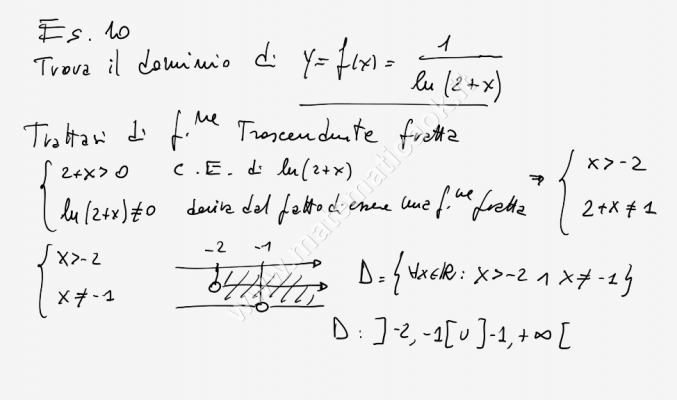 Es. 10
Trova il dominio di y = f(x) = 1 / ln(2+x)
Trattasi di f.ne Trascendente fratta
{ 2+x>0 C.E. di ln(2+x) ⇒ { x>-2
ln(2+x)≠0 deriva dal fatto di essere una f.ne fratta 2+x≠1
{ x>-2 -2 -1
x≠-1 D = {∀x∈ℝ : x>-2 ∧ x≠-1}
D : ]-2,-1[ ∪ ]-1,+∞[
www.matematicaok.it